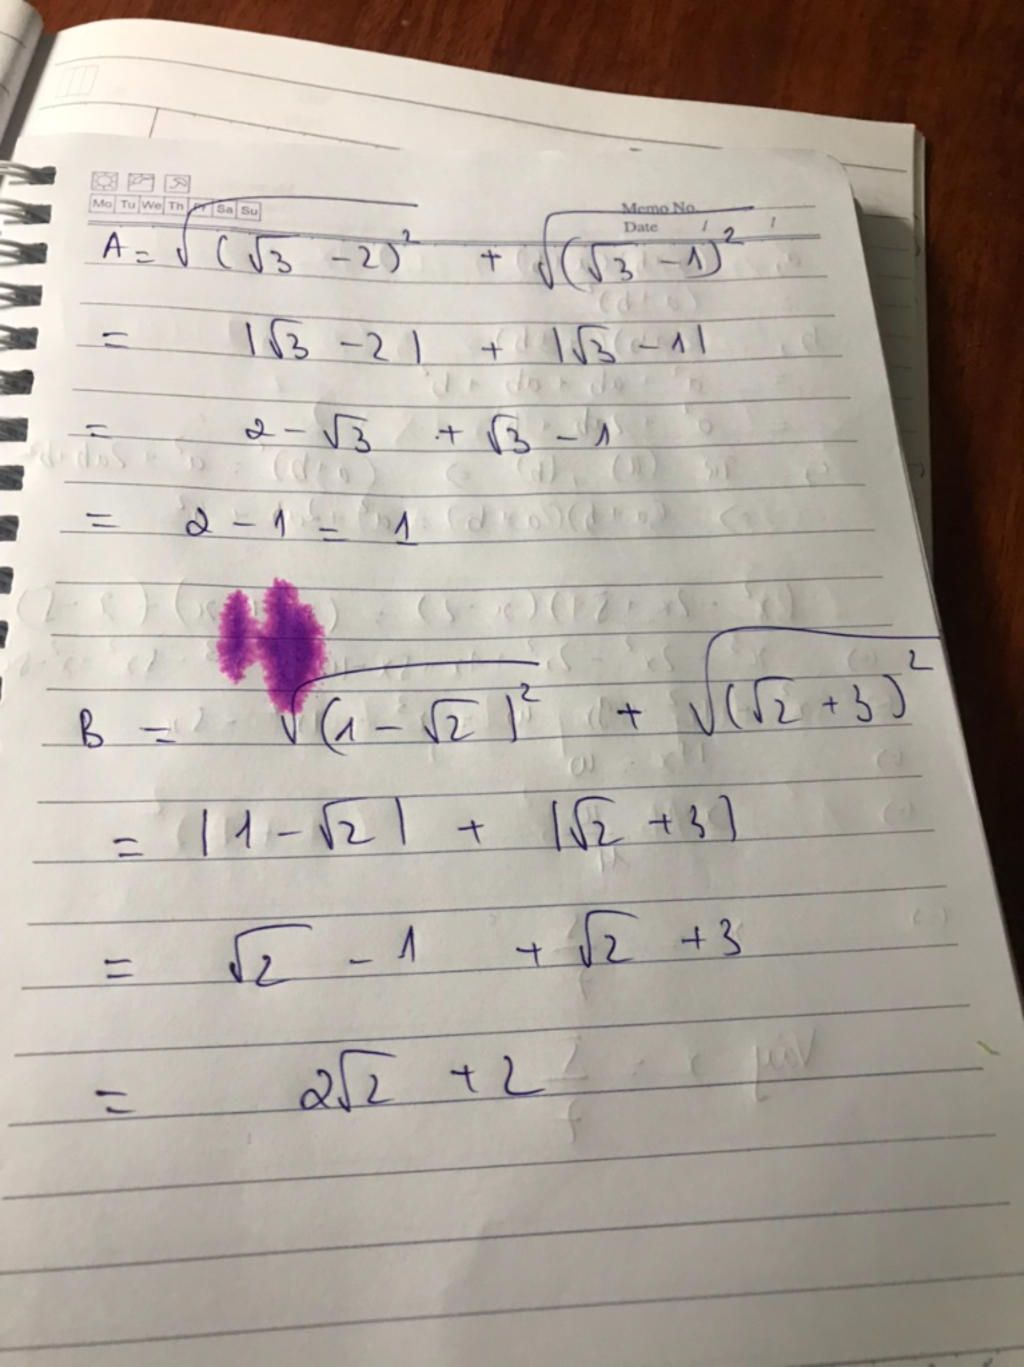 Mo Tu We Th Fr Sa Su
Memo No.
Date / /
A = √(√3 - 2)² + √(√3 - 1)²
= |√3 - 2| + |√3 - 1|
= 2 - √3 + √3 - 1
= 2 - 1 = 1
B = √(1 - √2)² + √(√2 + 3)²
= |1 - √2| + |√2 + 3|
= √2 - 1 + √2 + 3
= 2√2 + 2